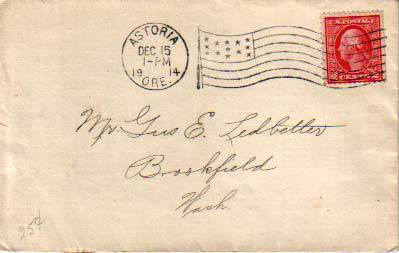 ASTORIA
DEC 15
1-PM
19 14
ORE.
U.S. POSTAGE
2 CENTS 2
Mr. Gus E. Ledbetter
Brookfield
Wash.
25¢